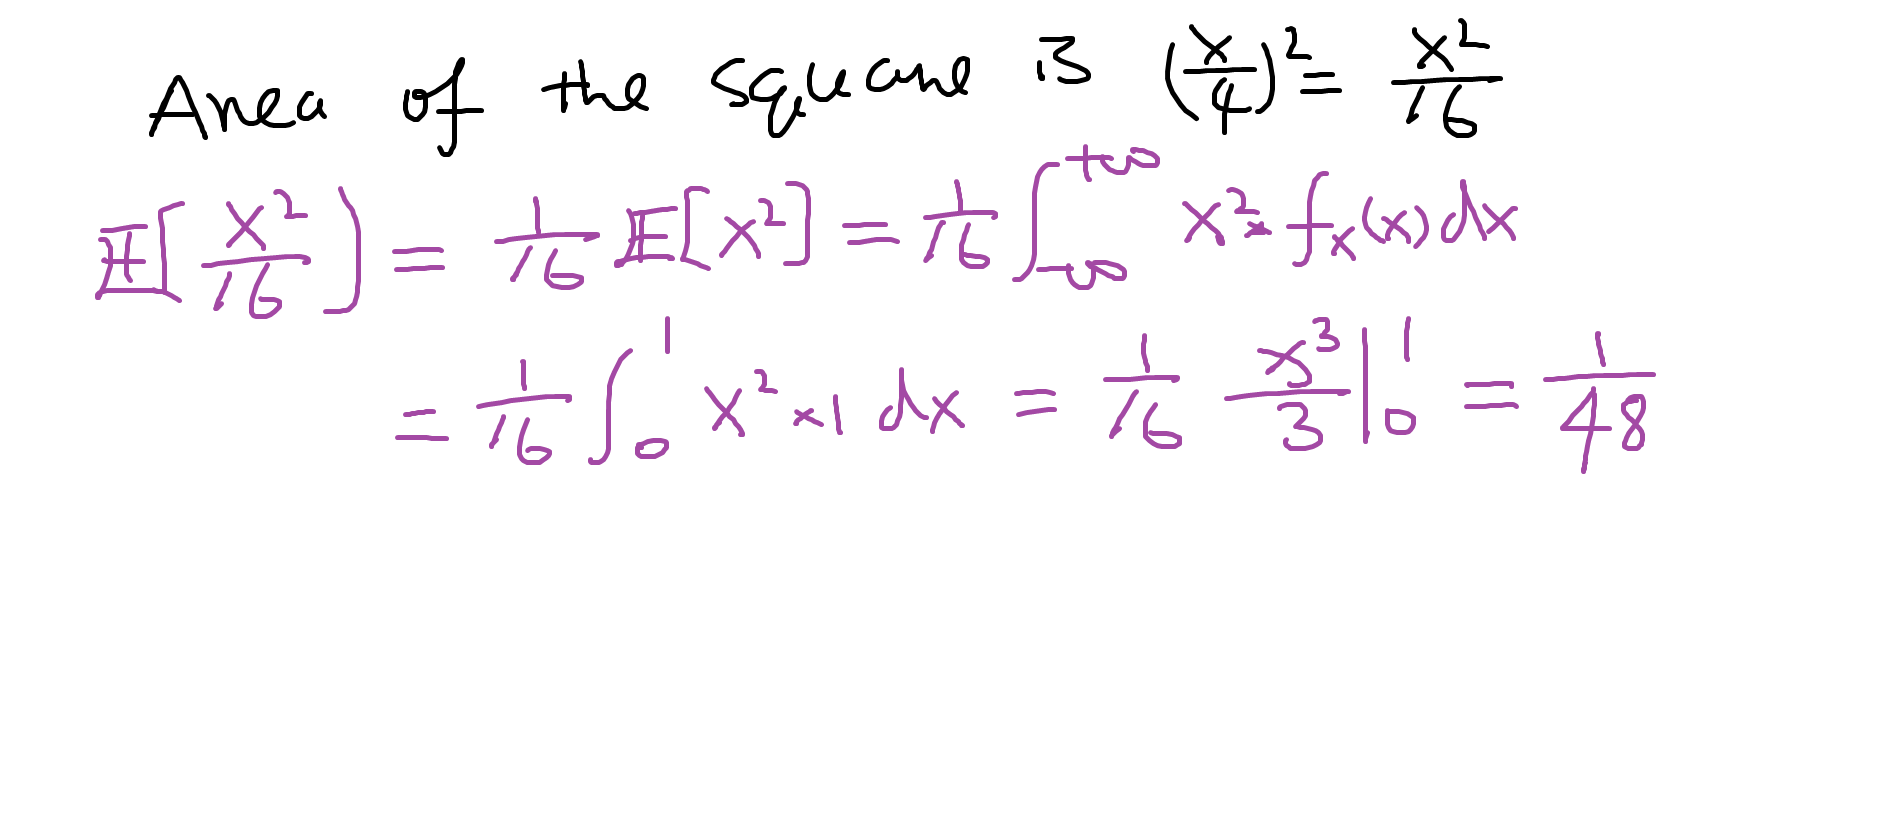 Area of the square is (x/4)² = x²/16
𝔼[x²/16] = 1/16 𝔼[x²] = 1/16 ∫_{-∞}^{+∞} x² × f_X(x) dx
= 1/16 ∫_0^1 x² × 1 dx = 1/16 x³/3 |_0^1 = 1/48